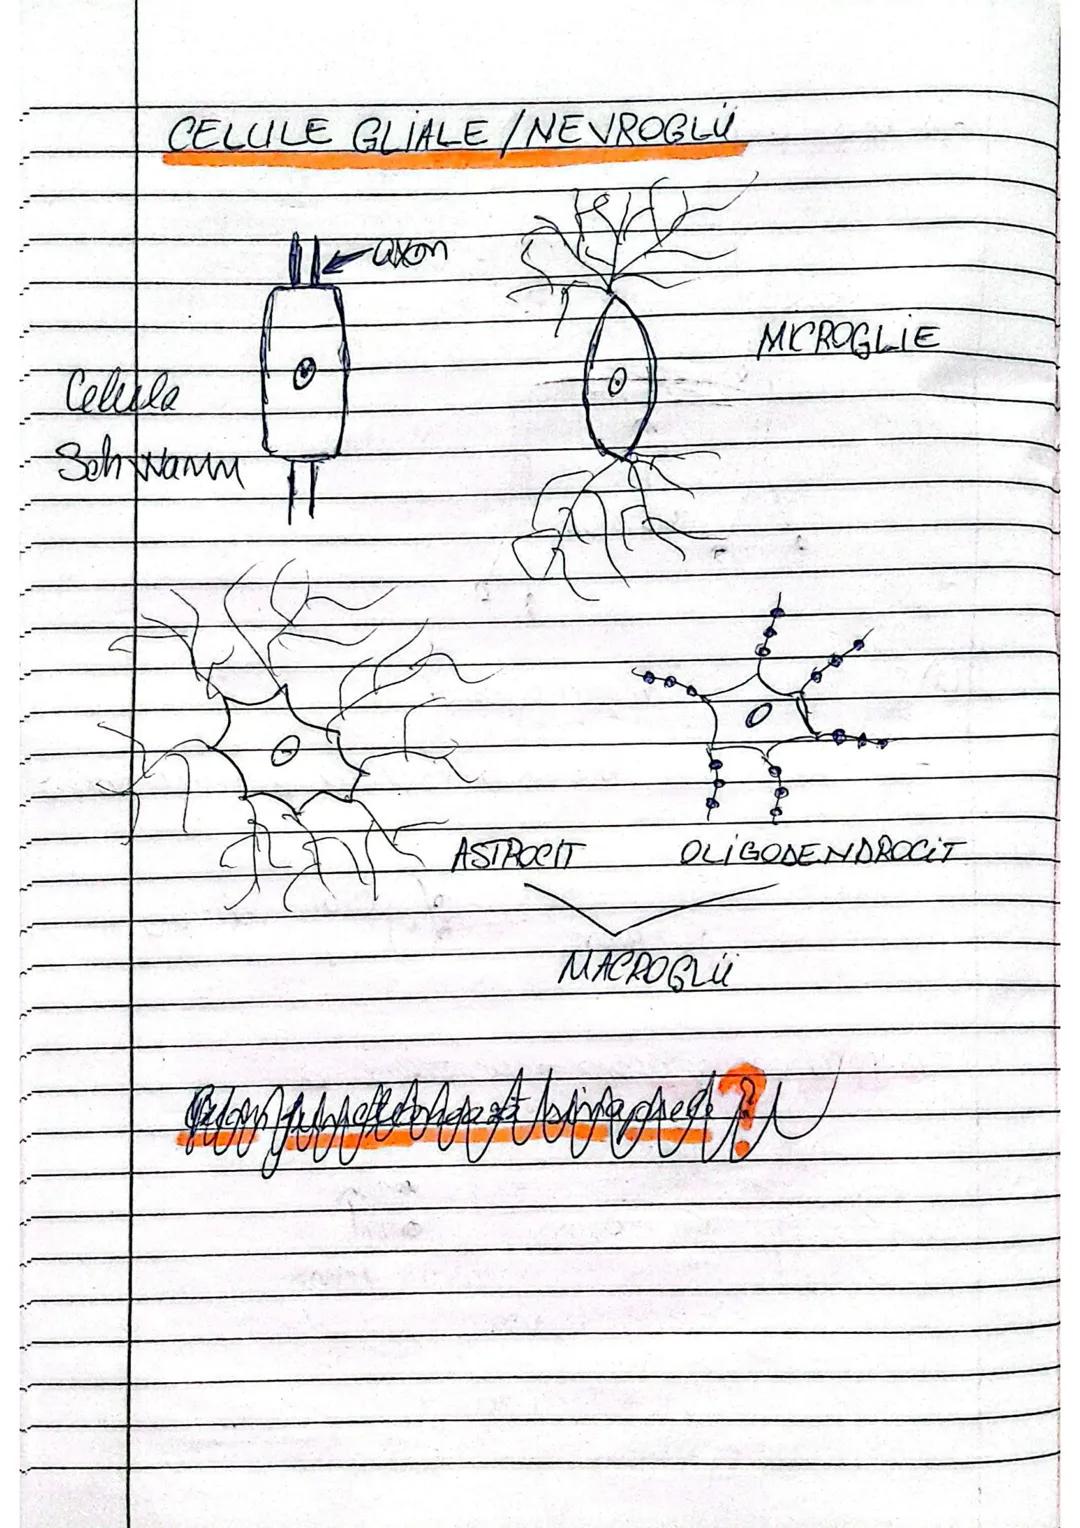 CELULE GLIALE / NEVROGLII
axon
MICROGLIE
Celula
Schwann
ASTROCIT OLIGODENDROCIT
MACROGLII